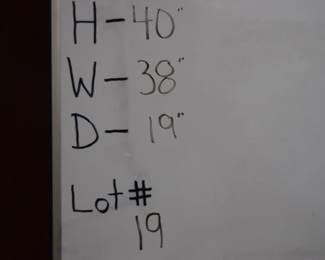 H-40"
W-38"
D-19"
Lot#
19